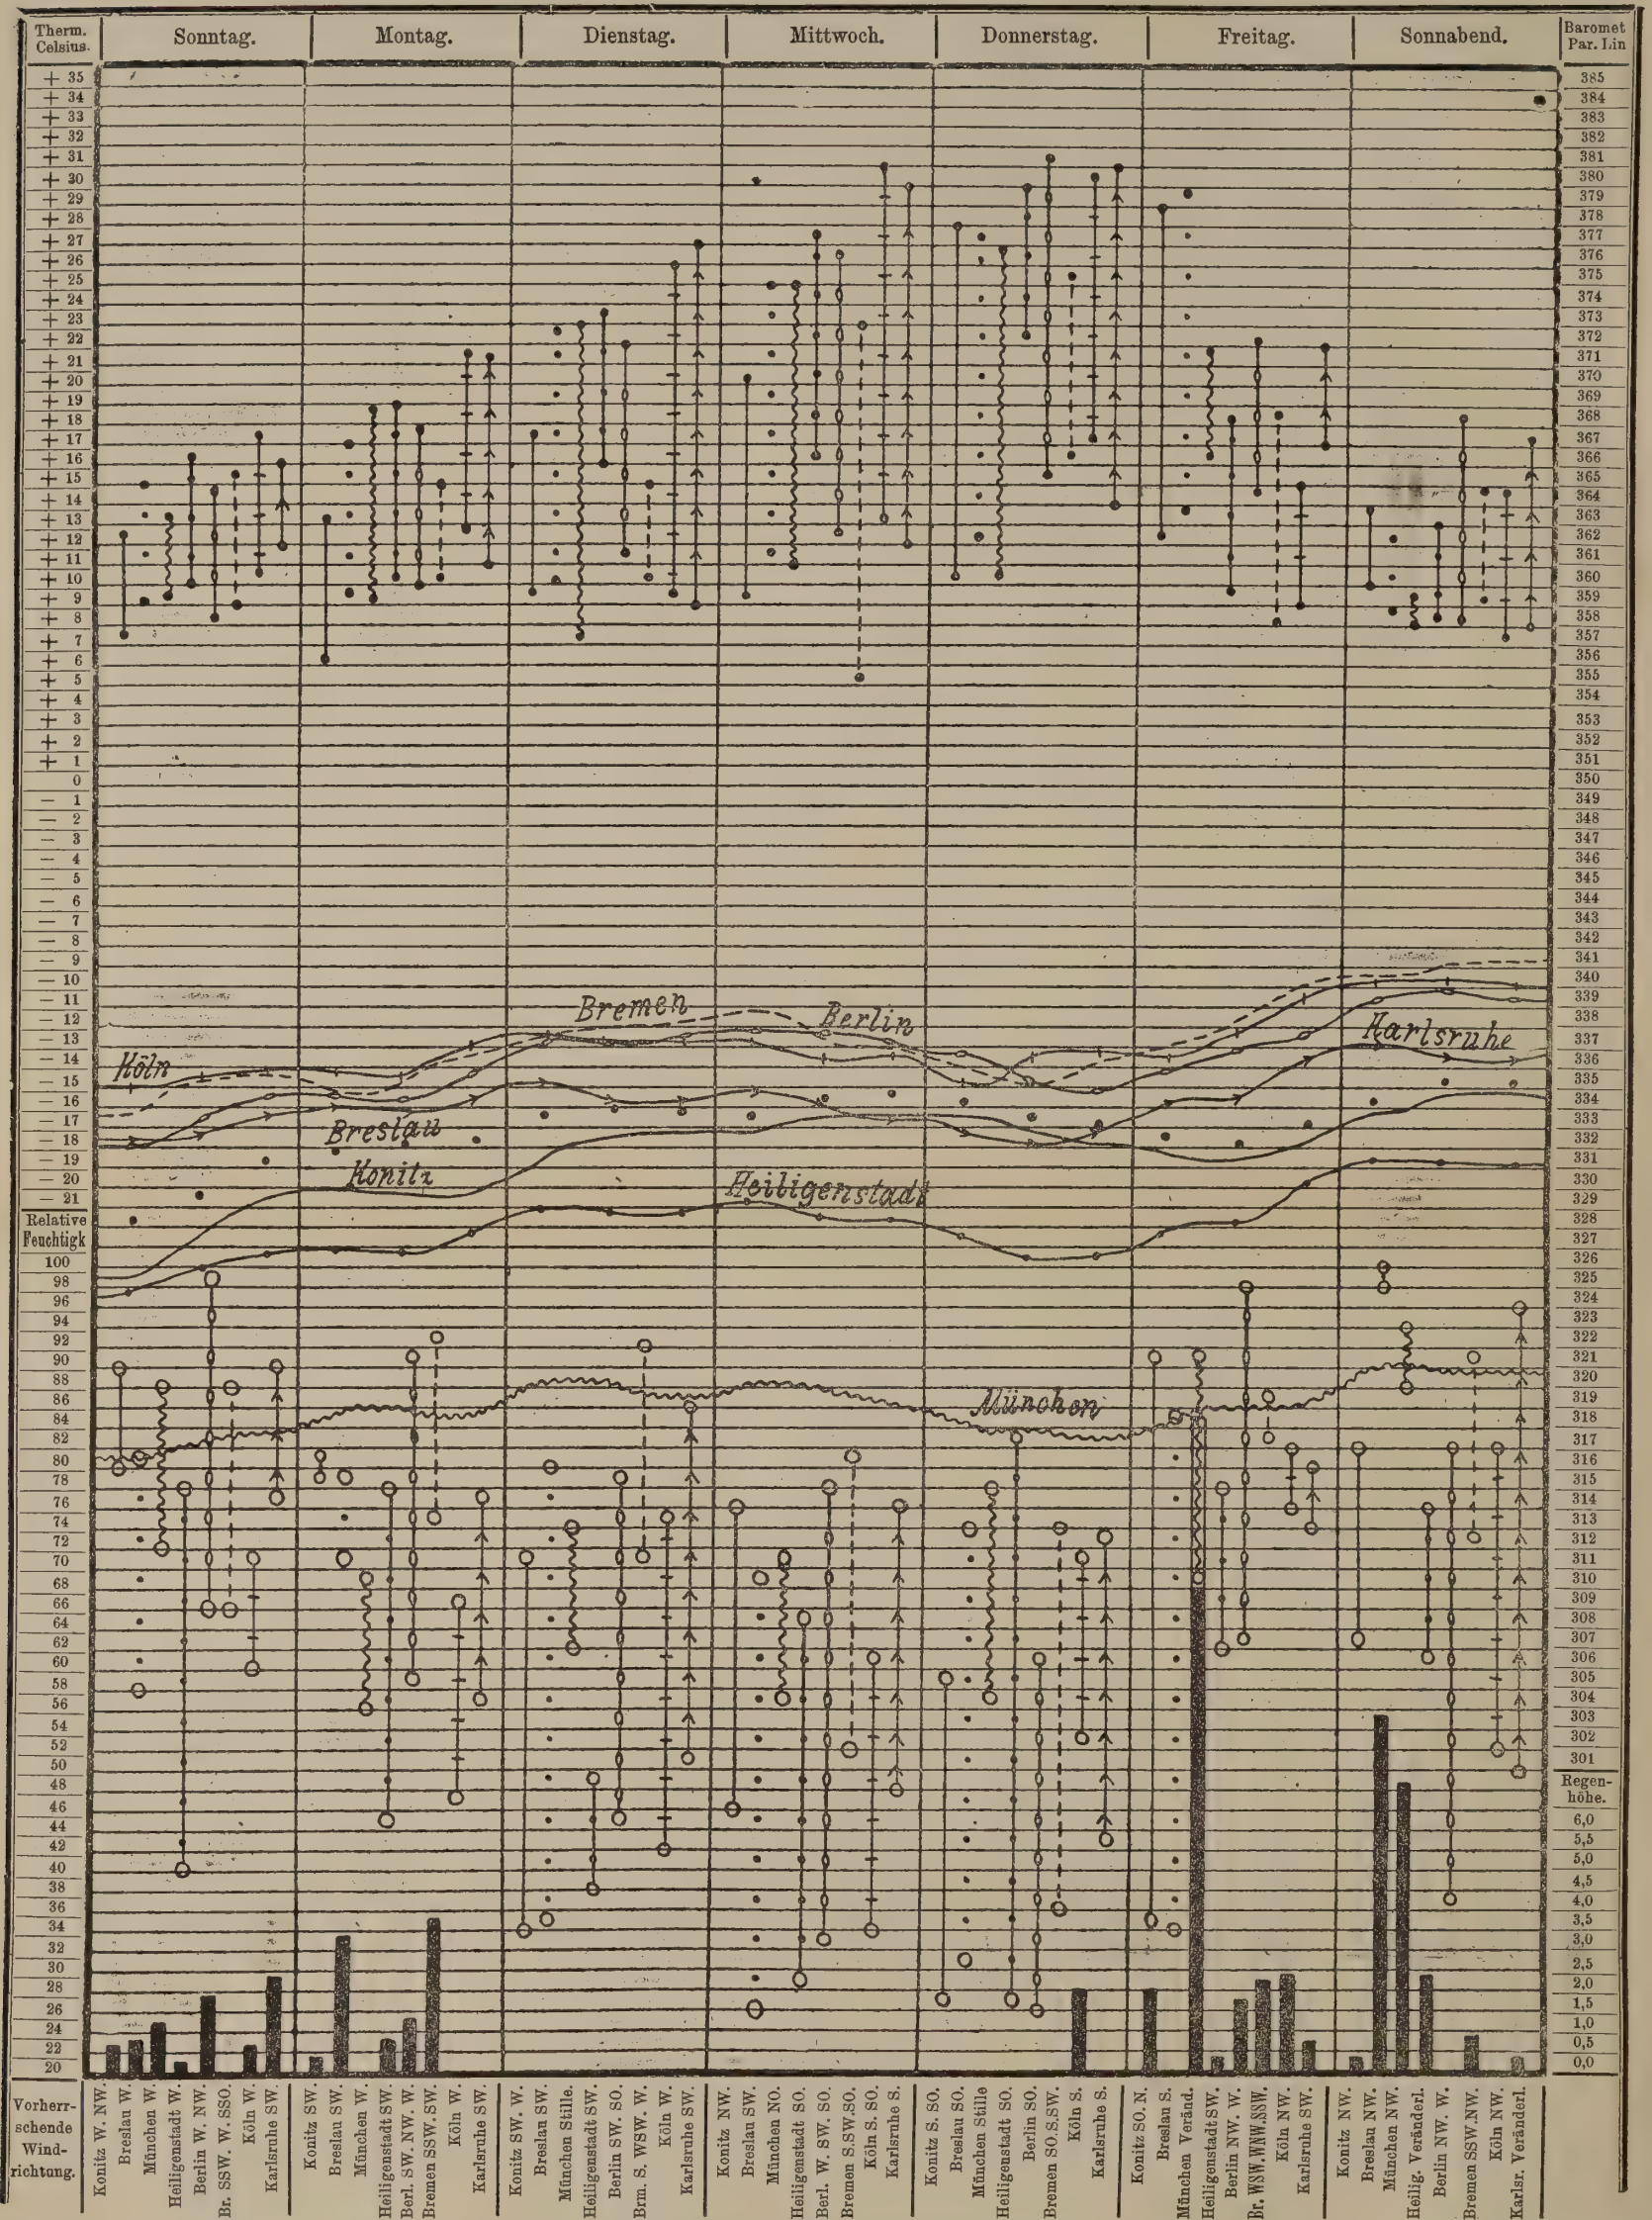 Therm.
Celsius.
Sonntag.
Montag.
Dienstag.
Mittwoch.
Donnerstag.
Freitag.
Sonnabend.
Baromet
Par. Lin
+ 35
+ 34
+ 33
+ 32
+ 31
+ 30
+ 29
+ 28
+ 27
+ 26
+ 25
+ 24
+ 23
+ 22
+ 21
+ 20
+ 19
+ 18
+ 17
+ 16
+ 15
+ 14
+ 13
+ 12
+ 11
+ 10
+ 9
+ 8
+ 7
+ 6
+ 5
+ 4
+ 3
+ 2
+ 1
0
— 1
— 2
— 3
— 4
— 5
— 6
— 7
— 8
— 9
— 10
— 11
— 12
— 13
— 14
— 15
— 16
— 17
— 18
— 19
— 20
— 21
Relative
Feuchtigk
100
98
96
94
92
90
88
86
84
82
80
78
76
74
72
70
68
66
64
62
60
58
56
54
52
50
48
46
44
42
40
38
36
34
32
30
28
26
24
22
20
Bremen
Berlin
Köln
Karlsruhe
Breslau
Konitz
Heiligenstadt
München
385
384
383
382
381
380
379
378
377
376
375
374
373
372
371
370
369
368
367
366
365
364
363
362
361
360
359
358
357
356
355
354
353
352
351
350
349
348
347
346
345
344
343
342
341
340
339
338
337
336
335
334
333
332
331
330
329
328
327
326
325
324
323
322
321
320
319
318
317
316
315
314
313
312
311
310
309
308
307
306
305
304
303
302
301
Regen-
höhe.
6,0
5,5
5,0
4,5
4,0
3,5
3,0
2,5
2,0
1,5
1,0
0,5
0,0
Vorherr-
schende
Wind-
richtung.
Konitz W. NW.
Breslau W.
München W.
Heiligenstadt W.
Berlin W. NW.
Br. SSW. W. SSO.
Köln W.
Karlsruhe SW.
Konitz SW.
Breslau SW.
München W.
Heiligenstadt SW.
Berl. SW. NW. W.
Bremen SSW. SW.
Köln W.
Karlsruhe SW.
Konitz SW. W.
Breslau SW.
München Stille.
Heiligenstadt SW.
Berlin SW. SO.
Brm. S. WSW. W.
Köln W.
Karlsruhe SW.
Konitz NW.
Breslau SW.
München NO.
Heiligenstadt SO.
Berl. W. SW. SO.
Bremen S.SW.SO.
Köln S. SO.
Karlsruhe S.
Konitz S. SO.
Breslau SO.
München Stille
Heiligenstadt SO.
Berlin SO.
Bremen SO.S.SW.
Köln S.
Karlsruhe S.
Konitz SO. N.
Breslau S.
München Veränd.
Heiligenstadt SW.
Berlin NW. W.
Br. WSW.WNW.SSW.
Köln NW.
Karlsruhe SW.
Konitz NW.
Breslau NW.
München NW.
Heilig. Veränderl.
Berlin NW. W.
Bremen SSW.NW.
Köln NW.
Karlsr. Veränderl.